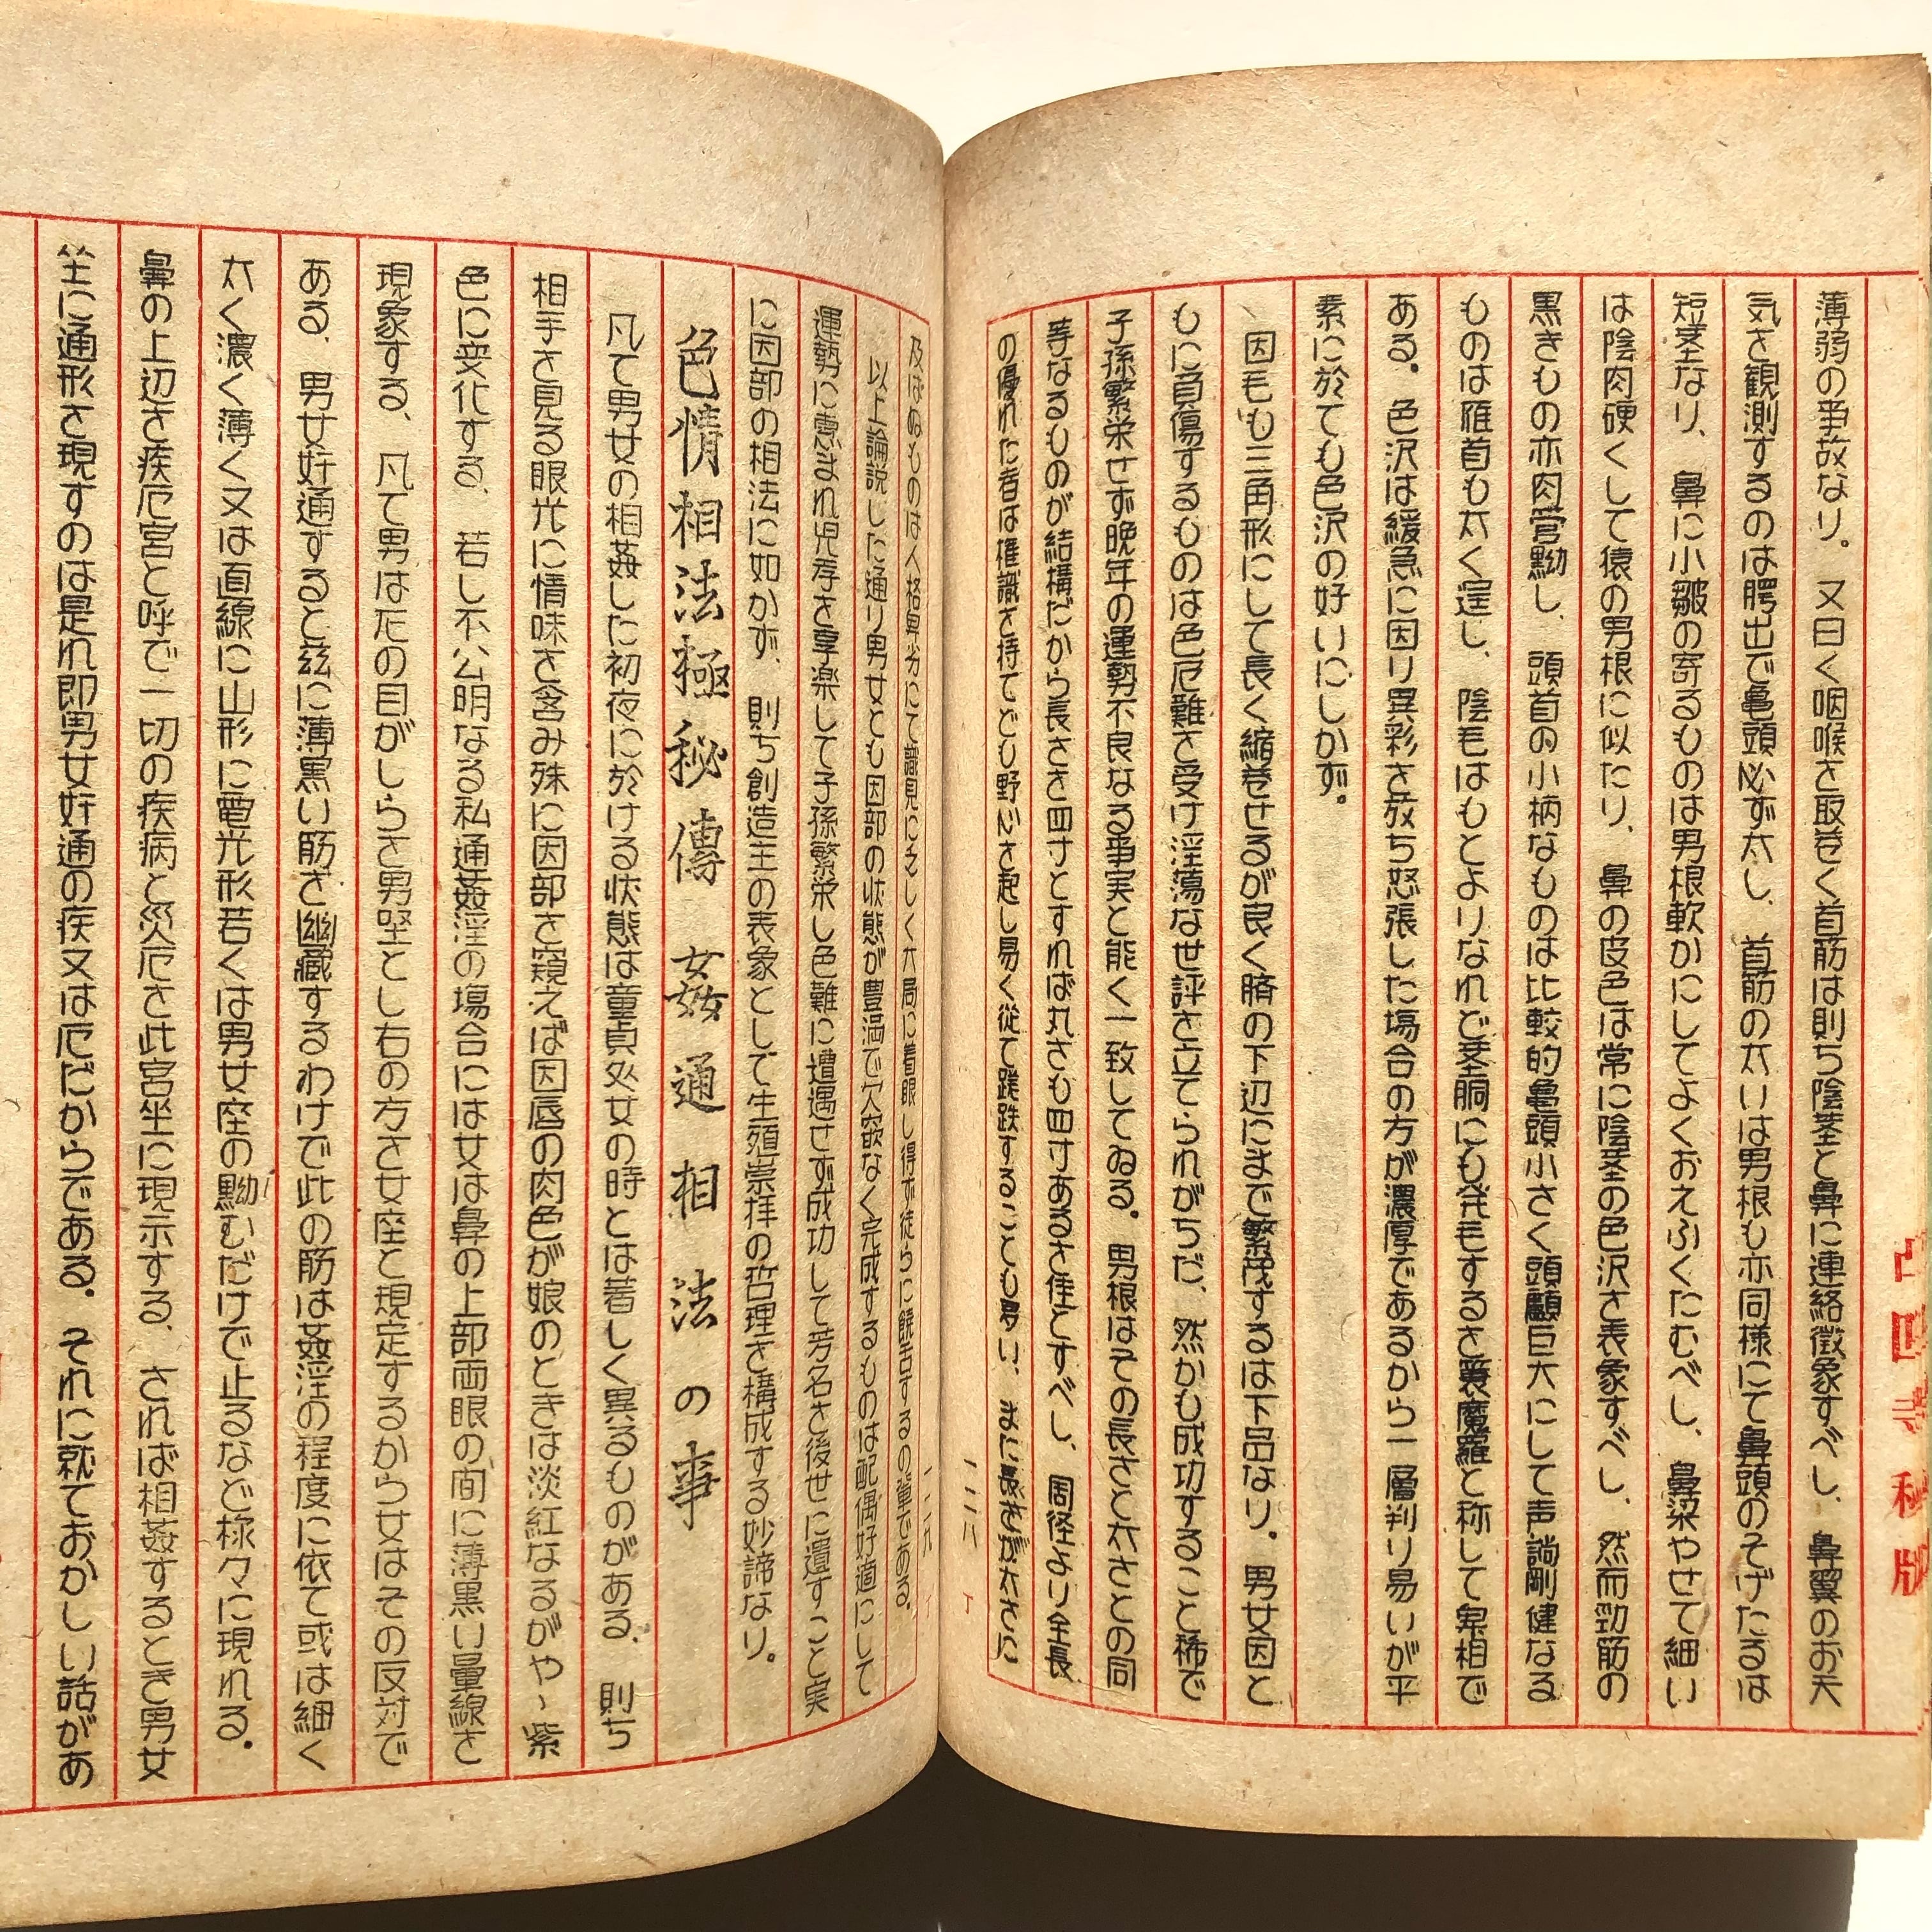 凸凹寺秘版
薄弱の事故なり。又曰く咽喉を取巻く首筋は則ち陰茎と鼻に連絡徴象すべし、鼻翼のお天
気を観測するのは腭出で亀頭必ず太し、首筋の太いは男根も亦同様にて鼻頭のそげたるは
短茎なり、鼻に小皺の寄るものは男根軟かにしてよくおえふくたむべし、鼻梁やせて細い
は陰肉硬くして猿の男根に似たり、鼻の皮色は常に陰茎の色沢を表象すべし、然而勁筋の
黒きもの亦肉管黝し、頭首の小柄なものは比較的亀頭小さく頭顱巨大にして声調剛健なる
ものは雁首も太く逞し、陰毛はもとよりなれど茎胴にも発毛するを蓑魔羅と称して卑相で
ある。色沢は緩急に因り異彩を放ち怒張した場合の方が濃厚であるから一層判り易いが平
素に於ても色沢の好いにしかず。
因毛も三角形にして長く縮巻せるが良く臍の下辺にまで繁茂するは下品なり。男女因と
もに負傷するものは色厄難を受け淫蕩な世評を立てられがちだ、然かも成功すること稀で
子孫繁栄せず晩年の運勢不良なる事実と能く一致してゐる。男根はその長さと太さとの同
等なるものが結構だから長さを四寸とすれば丸さも四寸あるを佳とすべし、周径より全長
の優れた者は権識を持てども野心を起し易く従て蹉跌することも多い、また長さが太さに
一二八丁
一二九丁
及ばぬものは人格卑劣にて識見に乏しく大局に着眼し得ず徒らに饒舌するの輩である。
以上論説した通り男女とも因部の状態が豊満で欠竅なく完成するものは配偶好適にして
運勢に恵まれ児孫を享楽して子孫繁栄し色難に遭遇せず成功して芳名を後世に遺すこと実
に因部の相法に如かず、則ち創造主の表象として生殖崇拝の哲理を構成する妙諦なり。
色情相法極秘傳 姦通相法の事
凡て男女の相姦した初夜に於ける状態は童貞処女の時とは著しく異るものがある、則ち
相手を見る眼光に情味を含み殊に因部を窺えば因唇の肉色が娘のときは淡紅なるがやゝ紫
色に変化する、若し不公明なる私通姦淫の場合には女は鼻の上部両眼の間に薄黒い暈線を
現象する、凡て男は左の目がしらを男坐とし右の方を女座と規定するから女はその反対で
ある、男女奸通すると茲に薄黒い筋を幽蔵するわけで此の筋は姦淫の程度に依て或は細く
太く濃く薄く又は直線に山形に電光形若くは男女座の黝むだけで止るなど様々に現れる。
鼻の上辺を疾厄宮と呼で一切の疾病と災厄を此宮坐に現示する、されば相姦するとき男女
坐に通形を現すのは是れ即男女奸通の疾又は厄だからである。それに就ておかしい話があ